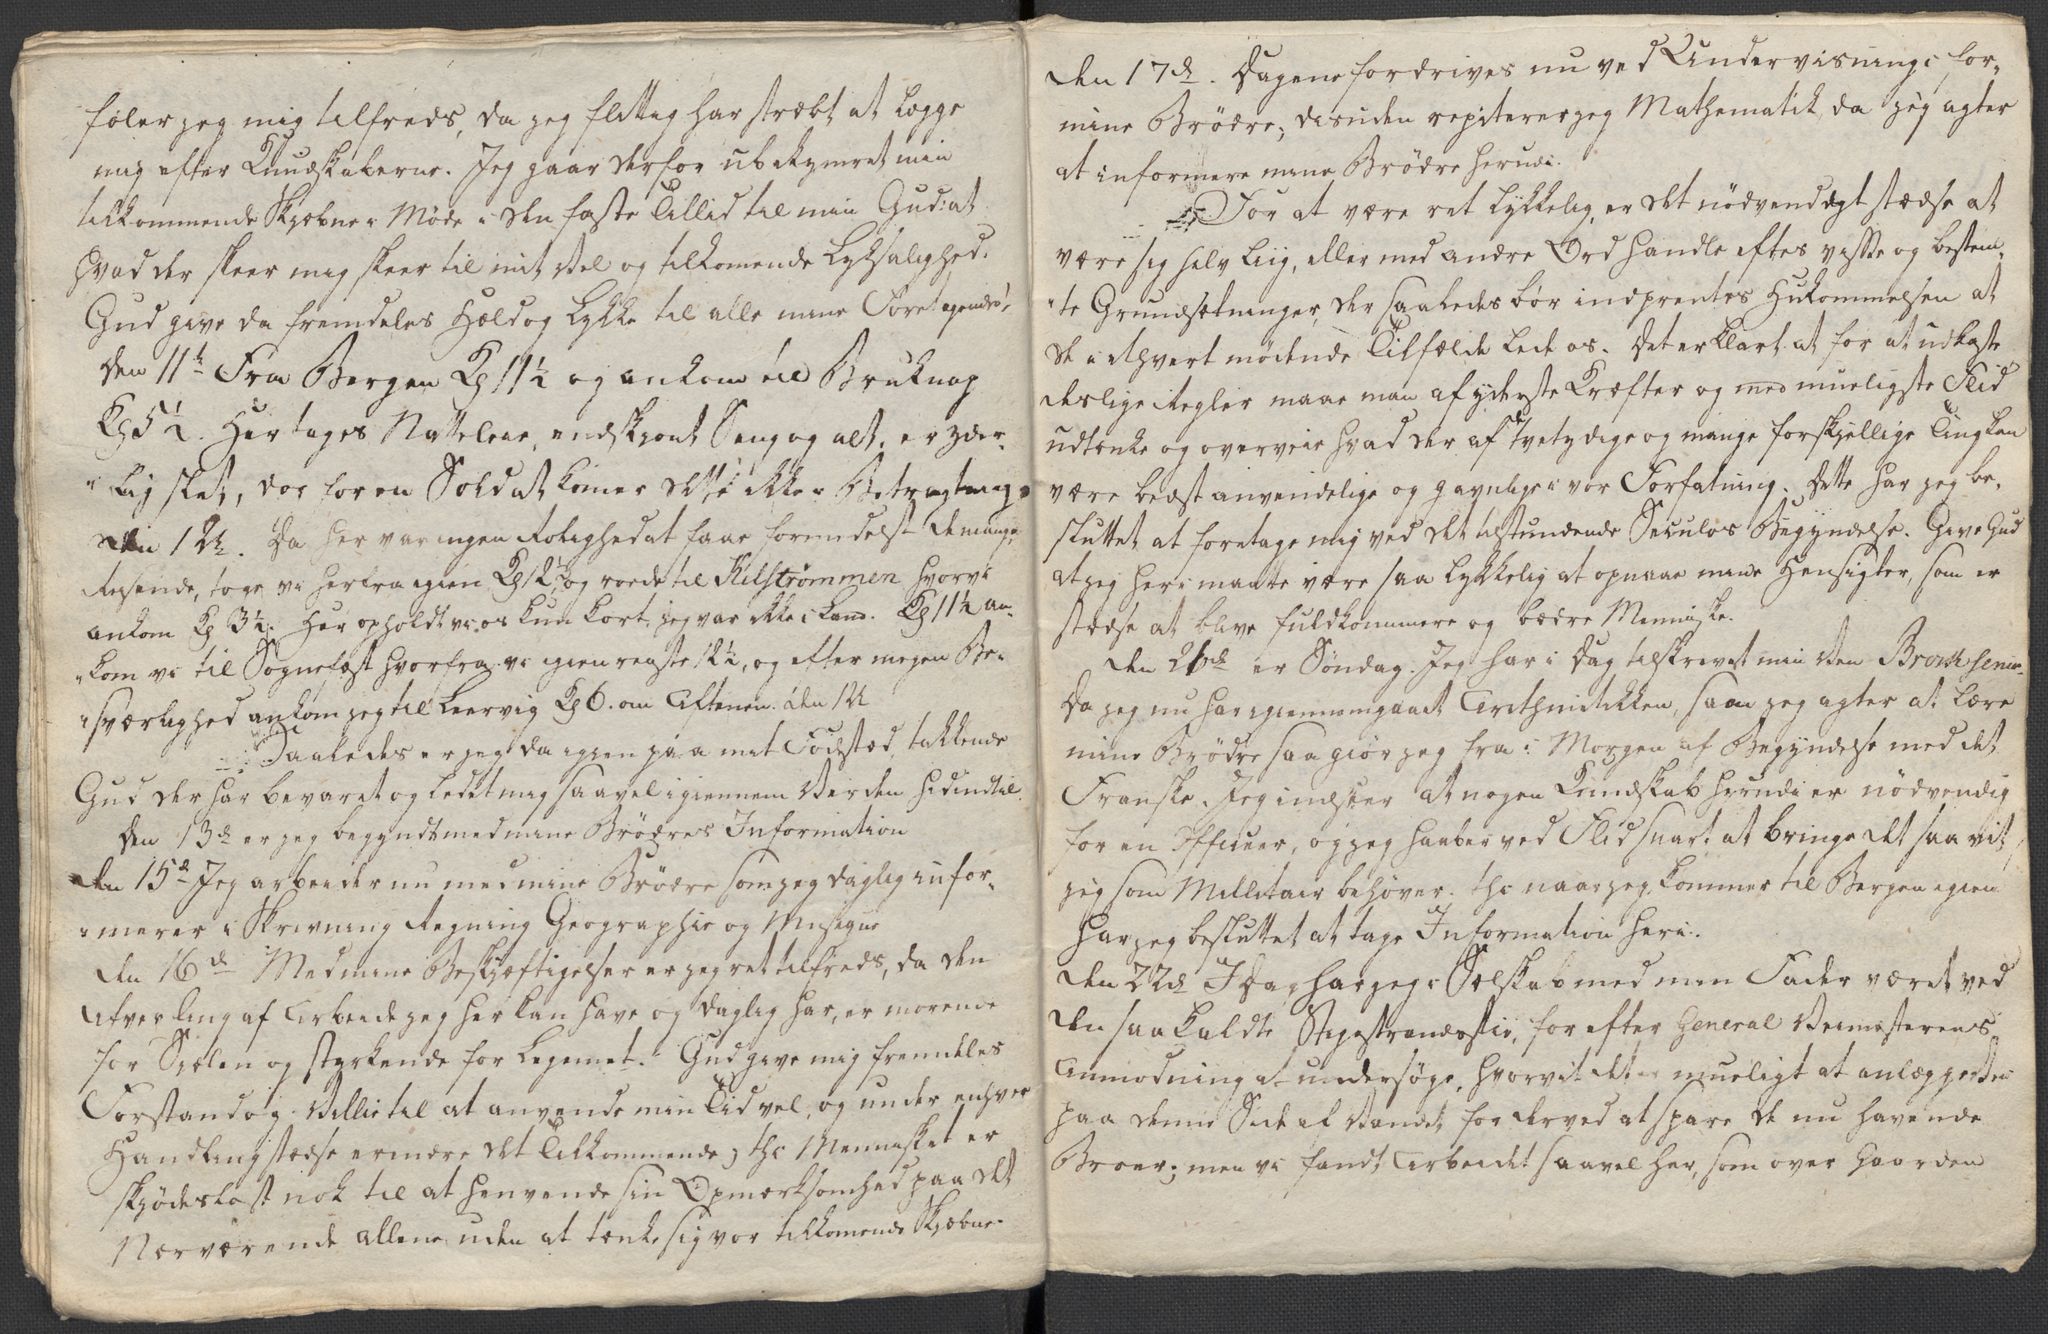 föler jeg mig tilfreds, da jeg flittig har stræbt at lægge
mig efter Kundskaberne. Jeg gaar derfor ubekymret min
tilkommende Skjæbne i Möde i den faste Tillid til min Gud: at
hvad der skeer mig skeer til mit Vel og tilkomende Lyksalighed.
Gud give da fremdeles Held og Lykke til alle mine Foretagender
Den 11te Fra Bergen Kl 11½ og ankom til Bruknap
Kl 5½. Her tages Natteleie, endskjönt Seng og alt, er yder-
"lig slet, dog for en Soldat komer dette ikke i Betragtning.
Den 12te. Da her var ingen Rolighed at faae formedelst de mange
Reisende, toge vi herfra igien Kl 12, og roede til Kilstrømmen hvor vi
ankom Kl 3½. Her opholdt vi os kun kort, jeg var ikke i Land. Kl 11½ an-
"kom vi til Sognefæst hvorfra vi igien reiste 12½, og efter megen Be-
"sværlighed ankom jeg til Leervig Kl 6. om Aftenen. den 12te
Saaledes er jeg da igien paa mit Födested, takkende
Gud der har bevaret og ledet mig saavel igiennem Verden hidindtil.
Den 13de er jeg begyndt med mine Brödres Information
Den 15de Jeg arbeider nu med mine Brödre som jeg daglig infor-
"merer i Skrivning Regning Geographie og Musique
Den 16de Med mine Beskjæftigelser er jeg ret tilfreds, da den
Afvexling af Arbeide jeg her kan have og daglig har, er morende
for Sjelen og styrkende for Legemet. Gud give mig fremdeles
Forstand og Villie til at anvende min Tid vel, og under enhver
Handling stedse erindre det Tilkommende, thi Mennesket er
skjödeslöst nok til at henvende sin Opmærksomhed paa det
Nærværende allene uden at tænke sig vor tilkomende Skjæbne.
Den 17de. Dagene fordrives nu ved Underviisning for
mine Brödre; desuden repiterer jeg Mathematik, da jeg agter
at informere mine Brödre herudi.
For at være ret lykkelig, er det nödvendigt stædse at
være sig selv liig, eller med andre Ord handle efter visse og bestem-
"te Grundsetninger, der saaledes bör indprentes Hukommelsen at
de i ethvert mödende Tilfælde lede os. Det er klart at for at udkaste
deslige Regler maae man af yderste Kræfter og med mueligste Flid
udtænke og overveie hvad der af tvetydige og mange forskjellige Ting kan
være bedst anvendelige og gavnlige i vor Forfatning. Dette har jeg be-
sluttet at foretage mig ved det tilstundende Seculos Begyndelse. Give Gud
at jeg heri maatte være saa lykkelig at opnaae mine Hensigter, som er
stædse at blive fuldkomnere og bedre Menniske.
Den 21de er Söndag. Jeg har i Dag tilskrevet min Ven
Da jeg nu har igiennemgaaet Arithmetikken, saa jeg agter at lære
mine Brödre saa giör jeg fra i Morgen af Begyndelse med det
Franske. Jeg indseer at nogen Kundskab herudi er nödvendig
for en Officeer, og jeg haaber ved Flid snart at bringe det saa vit,
jeg som Millitair behöver. thi naar jeg kommer til Bergen igien
har jeg besluttet at tage Information heri.
Den 22de I Dag har jeg i Selskab med min Fader været ved
den saa kaldte Stegestrandstie, for efter General Veimesterens
Anmodning at undersöge, hvorvit det er mueligt at anlægge Vei
paa denne Side af Vandet, for derved at spare de nu havende
Broer; men vi fandt Arbeidet saavel her, som over Gaarden